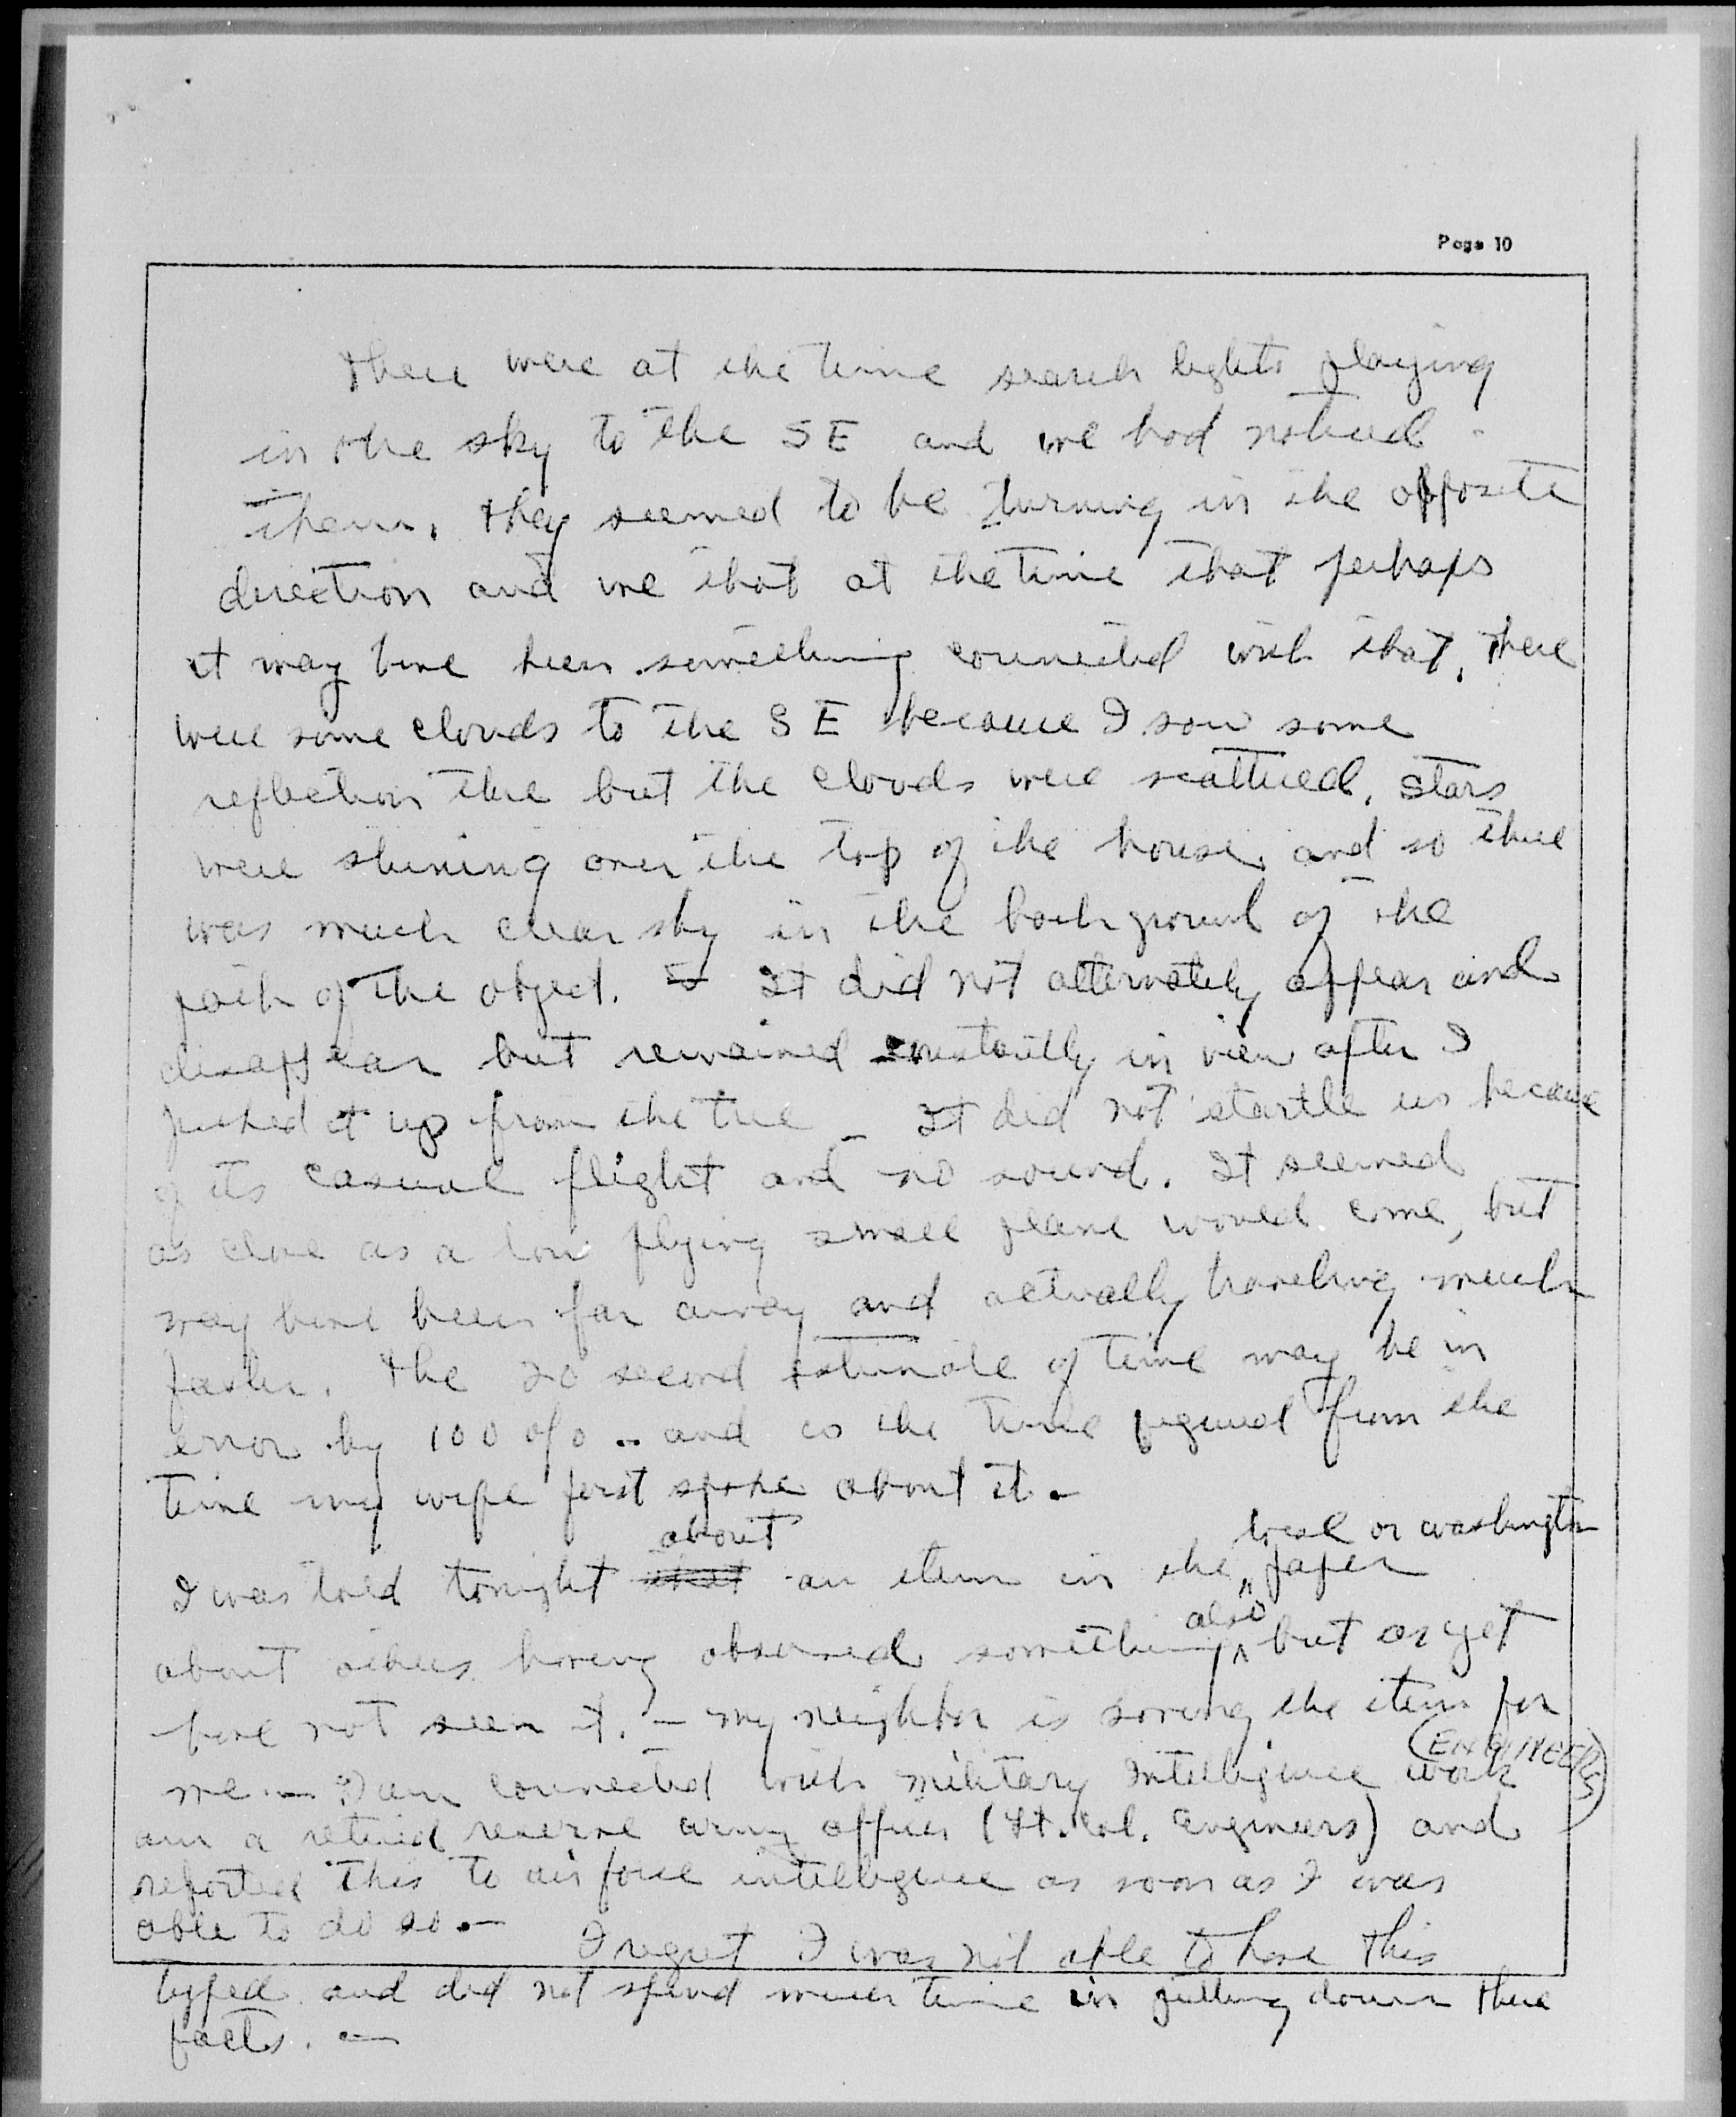 Page 10
There were at the time search lights playing
in the sky to the SE and we had noticed -
them, they seemed to be turning in the opposite
direction and we that at the time that perhaps
it may have been something connected with that. There
were some clouds to the SE because I saw some
reflection there but the clouds were scattered. Stars
were shining over the top of the house and so there
was much clear sky in the background of the
path of the object. It did not alternately appear and
disappear but remained constantly in view after I
picked it up from the tree - It did not startle us because
of its casual flight and no sound. It seemed
as close as a low flying small plane would come, but
may have been far away and actually traveling much
faster. The 20 second estimate of time may be in
error by 100 o/o .. and is the time figured from the
time my wife first spoke about it. -
about local or washington
I was told tonight that an item in the paper
also
about others having observed something but as yet
have not seen it. - my neighbor is saving the item for
(ENGINEERS)
me - I am connected with military Intelligence work
am a retired reserve army officer (Lt. Col. Engineers) and
reported this to air force intelligence as soon as I was
able to do so. - I regret I was not able to have this
typed and did not spend much time in putting down these
facts. -